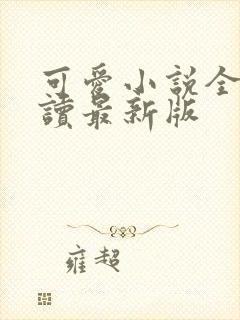 可愛小說全
讀最新版
雍超